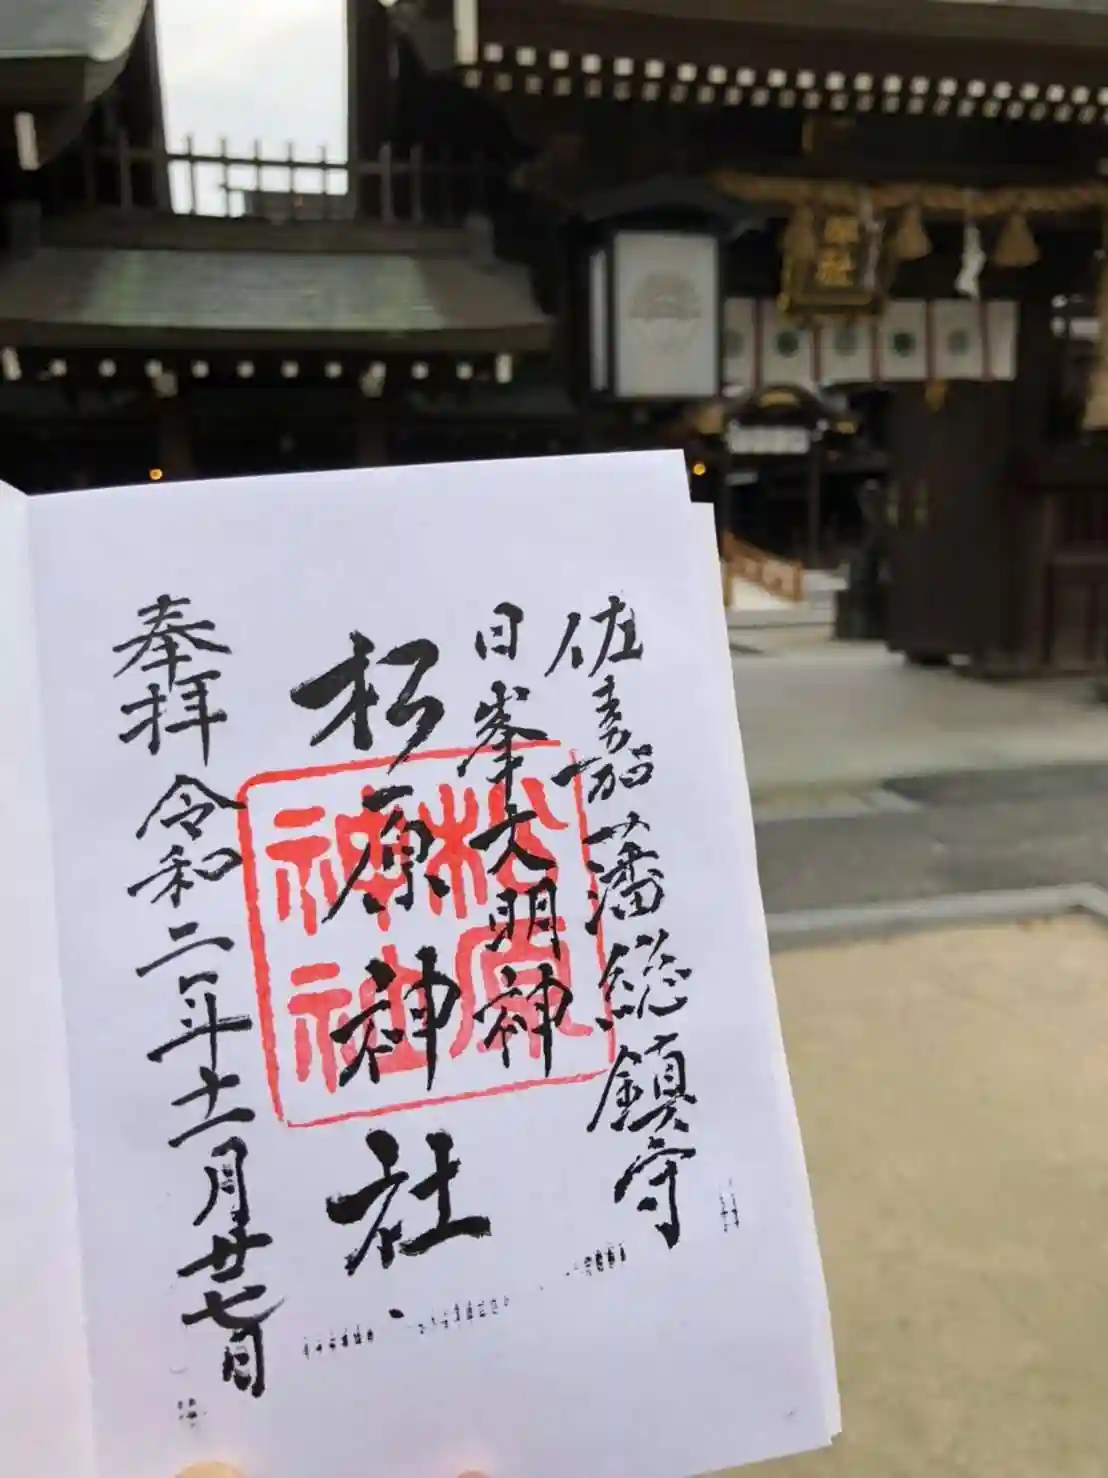 佐嘉藩総鎮守
日峯大明神
松原神社
奉拝 令和二年十一月廿七日
松原
神社